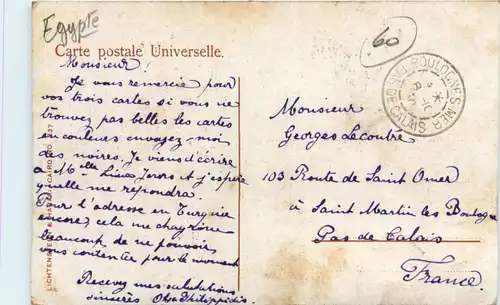 Egypte
60
Carte postale Universelle.
BOULOGNE S MER
PAS DE CALAIS
Monsieur!
Je vous remercie pour
vos trois cartes si vous ne
trouvez pas belles les cartes
en couleurs envoyez-moi
des noires. Je viens d'écrire
à Mlle Lina et j'espère
qu'elle me répondra.
Pour l'adresse en Turquie
encore, cela me chagrine
beaucoup de ne pouvoir
vous contenter pour le moment
Recevez mes salutations
sincères
Monsieur
Georges Lecoutre
103 Route de Saint Omer
à Saint Martin les Boulogne
Pas de Calais
France